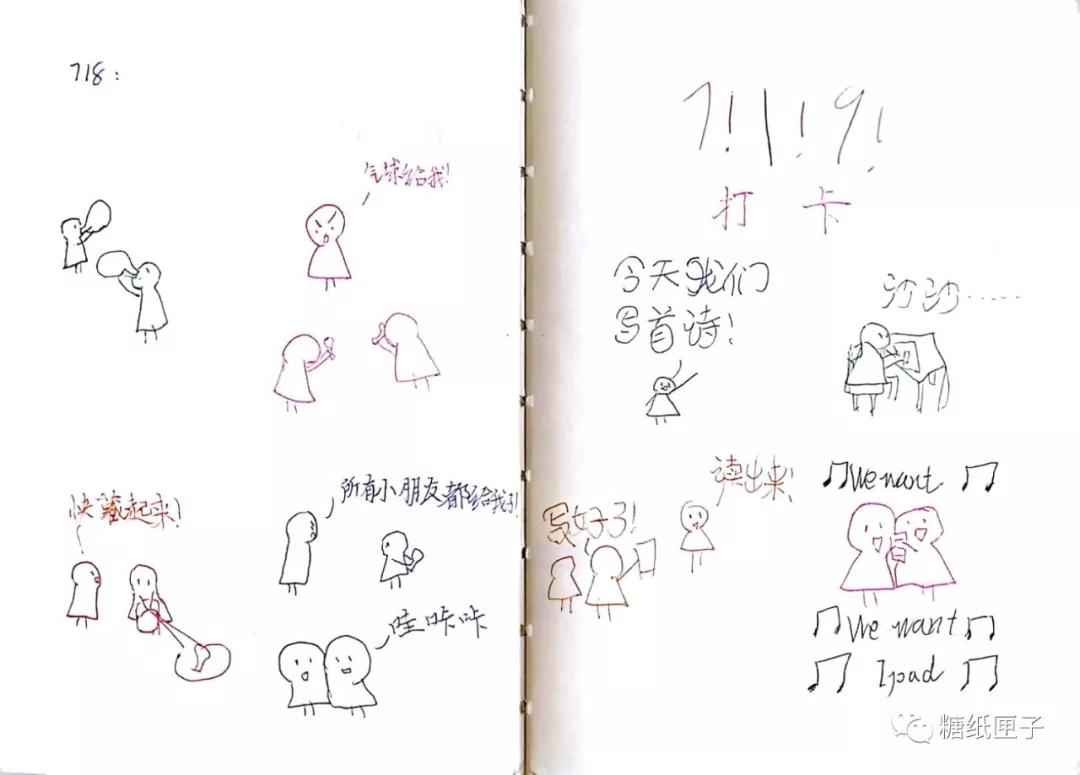 718:
气球给我!
快藏起来!
所有小朋友都给我了!
哇咔咔
7!1!9!
打卡
今天我们
写首诗!
沙沙……
写好了!
读出来!
♫We want ♫
♫We want♫
♫ Ipad ♫
糖纸匣子